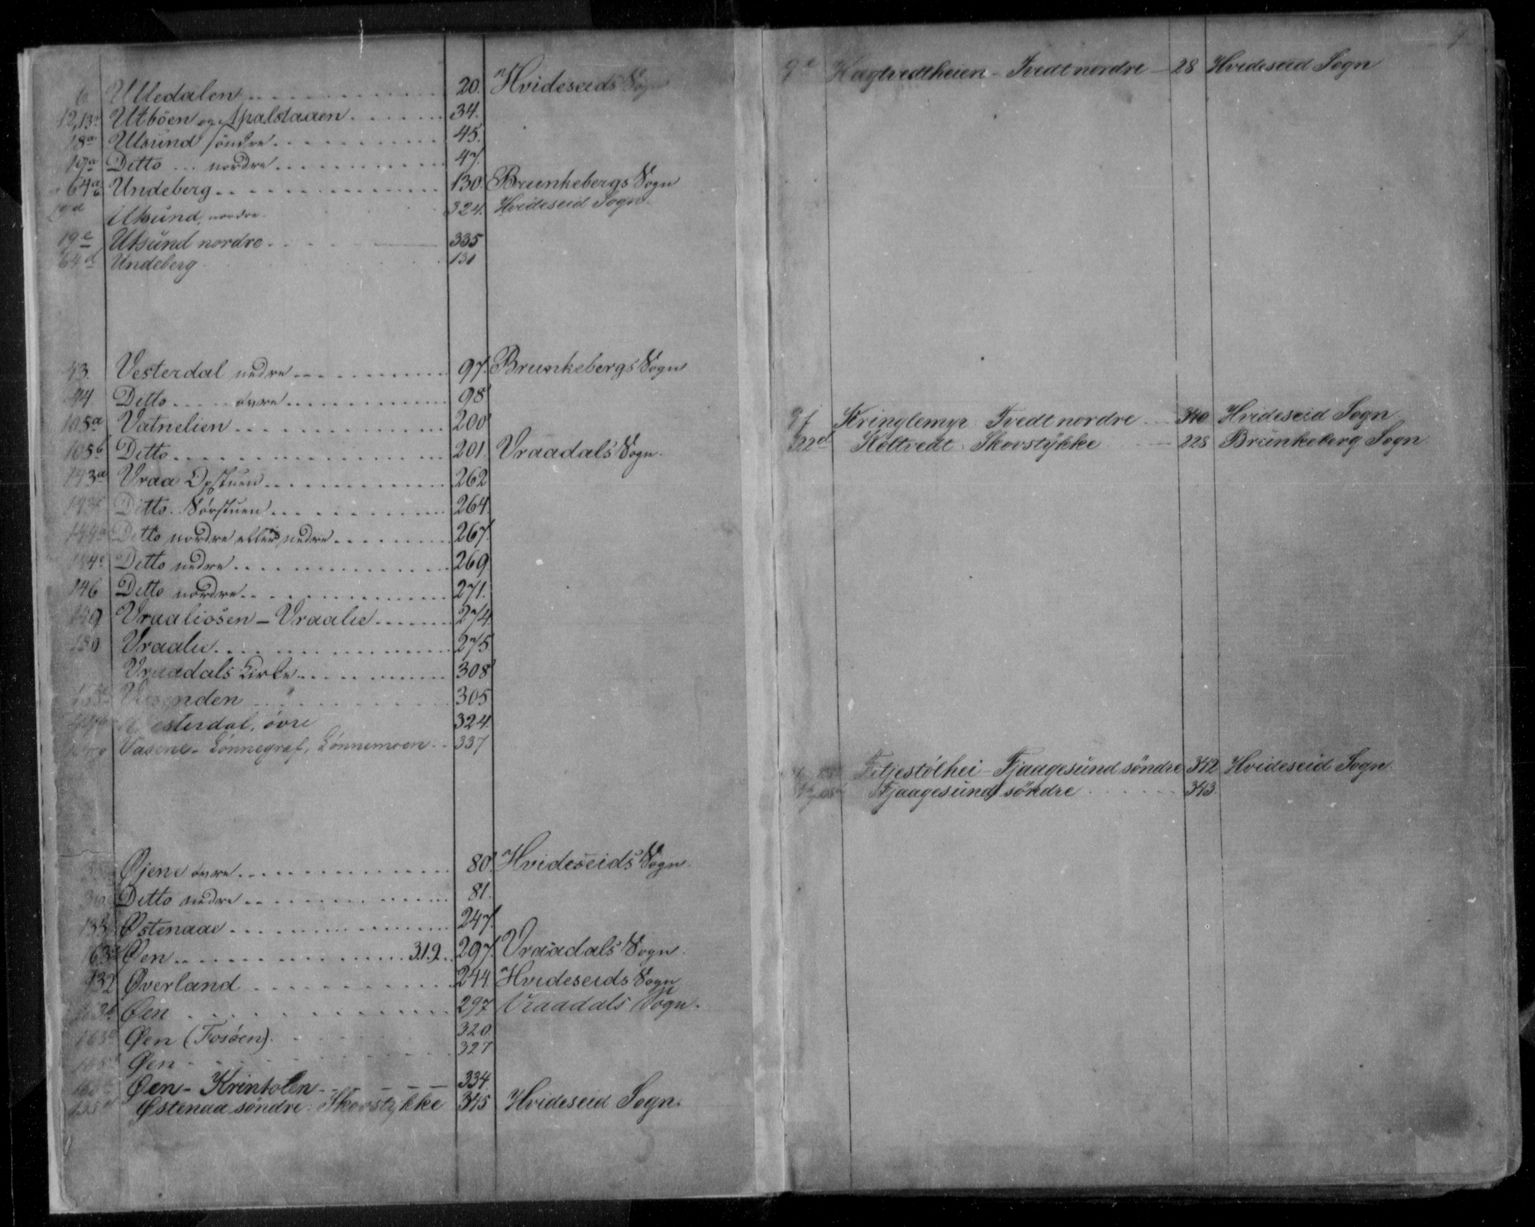 6 Ulledalen 20. Hvideseids Sogn
12,13a Utböen og Apalstaaen 34.
18a Utsund söndre 45.
19a Ditto nordre 47.
64a Undeberg 130. Brunkebergs Sogn
Utsund, nordre 324. Hvideseid Sogn.
19e Utsund nordre 335
64d Undeberg 131
43 Vesterdal nedre 97. Brunkebergs Sogn
44 Ditto övre 98
105a Vatnelien 200
105b Ditto 201 Vraadals Sogn.
143a Vraa Opstuen 262
Ditto Sörstuen 264.
Ditto nordre eller nedre 267.
Ditto nedre 269
146 Ditto nordre 271.
149 Vraaliosen - Vraalie 274
150 Vraalie 275
Vraadals Kirke 308
305
Vesterdal, övre 324.
Vasend - Lönnegraf, Lönnemoen 337
Øjene övre 80. Hvideseids Sogn.
36 Ditto nedre 81.
133 Østenaae 247.
163a Øen 319. 297. Vraadals Sogn.
132 Øverland 244. Hvideseids Sogn
Øen 297 Vraadals Sogn.
Øen (Fosöen). 320
Øen 327
Øen - Krintolen 334.
Østenaa söndre Skovstykke 345 Hvideseid Sogn.
7
9e Hagtvedtheien - Tvedt nordre - 28 Hvideseid Sogn
9f Kringlemyr Tvedt nordre 340 Hvideseid Sogn
122d Kottvedt Skovstÿkke 228 Brunkeberg Sogn
Fitjestölhei - Fjaagesund söndre 342 Hvideseid Sogn
Fjaagesund söndre 343